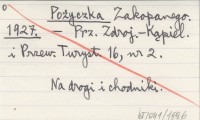 Pożyczka Zakopanego.
1927. — Prz. Zdroj.-Kąpiel.
i Przew. Turyst. 16, nr 2.
Na drogi i chodniki.